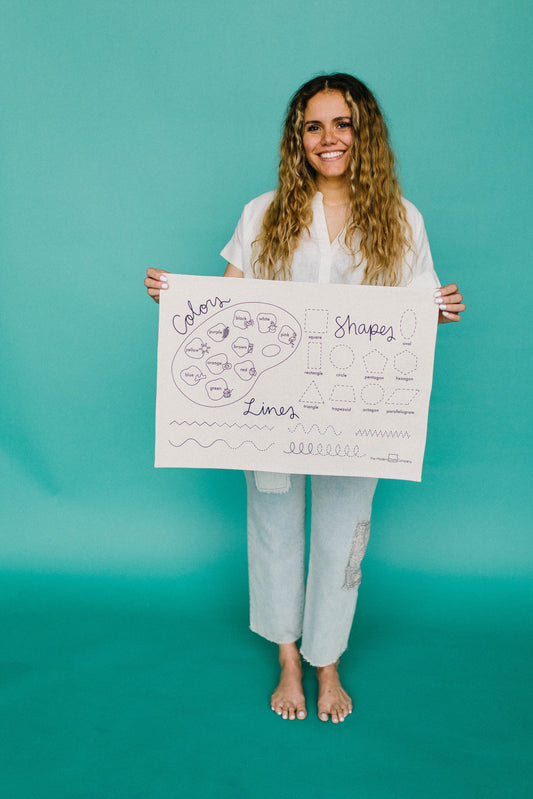 Colors
black
white
pink
purple
yellow
brown
orange
red
blue
green
Shapes
square
oval
rectangle
circle
pentagon
hexagon
triangle
trapezoid
octagon
parallelogram
Lines